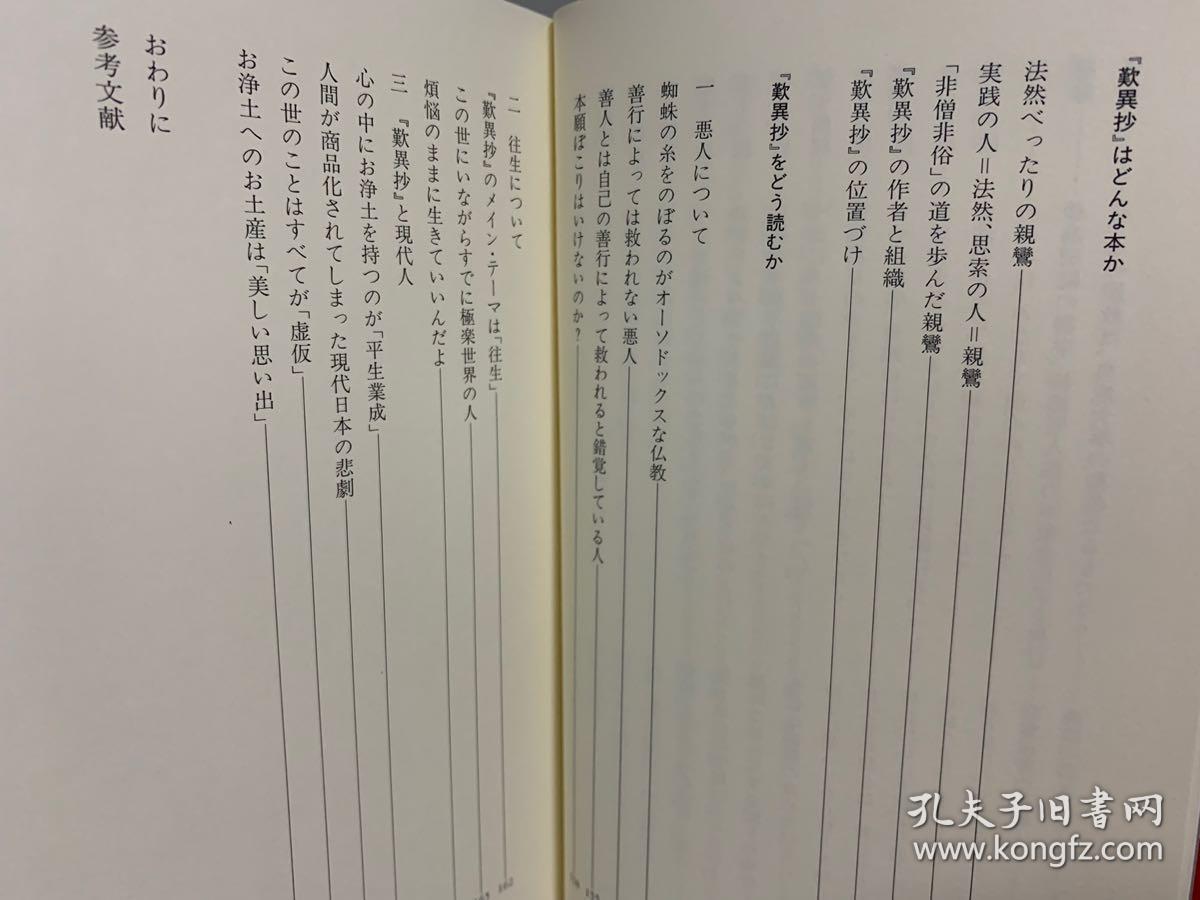 『歎異抄』はどんな本か
法然べったりの親鸞
実践の人＝法然、思索の人＝親鸞
「非僧非俗」の道を歩んだ親鸞
『歎異抄』の作者と組織
『歎異抄』の位置づけ
『歎異抄』をどう読むか
一　悪人について
蜘蛛の糸をのぼるのがオーソドックスな仏教
善行によっては救われない悪人
善人とは自己の善行によって救われると錯覚している人
本願ぼこりはいけないのか？
二　往生について
『歎異抄』のメイン・テーマは「往生」
この世にいながらすでに極楽世界の人
煩悩のままに生きていいんだよ
三　『歎異抄』と現代人
心の中にお浄土を持つのが「平生業成」
人間が商品化されてしまった現代日本の悲劇
この世のことはすべてが「虚仮」
お浄土へのお土産は「美しい思い出」
おわりに
参考文献
孔夫子旧书网
www.kongfz.com